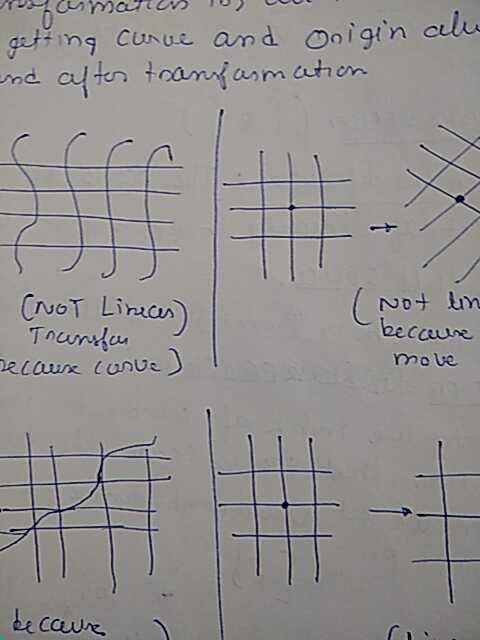 getting curve and origin
and after transformation
(NOT Linear)
Transfor
because curve)
(Not lin
because
move
because )